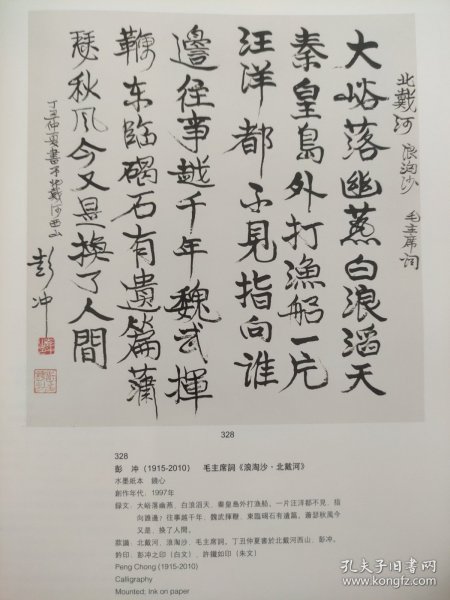 北戴河 浪淘沙 毛主席词
大峪落幽燕白浪滔天
秦皇島外打漁船一片
汪洋都不見指向谁
邊往事越千年魏武揮
鞭东临碣石有遺篇蕭
瑟秋风今又是换了人間
丁丑仲夏書于北戴河西山
彭冲
328
328
彭 冲（1915-2010） 毛主席詞《浪淘沙·北戴河》
水墨紙本 鏡心
創作年代：1997年
録文：大峪落幽燕，白浪滔天，秦皇島外打漁船。一片汪洋都不見，指
向誰邊？往事越千年，魏武揮鞭，東臨碣石有遺篇。蕭瑟秋風今
又是，換了人間。
款識：北戴河，浪淘沙，毛主席詞。丁丑仲夏書於北戴河西山，彭冲。
鈐印：彭冲之印（白文），許鐵如印（朱文）
Peng Chong (1915-2010)
Calligraphy
Mounted; Ink on paper
孔夫子旧书网